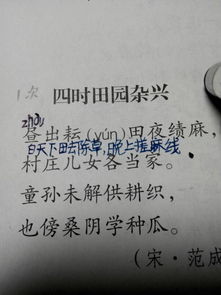 四时田园杂兴
zhòu
昼出耘(yún)田夜绩麻，
白天下田去除草，晚上搓麻线
村庄儿女各当家。
童孙未解供耕织，
也傍桑阴学种瓜。
(宋·范成